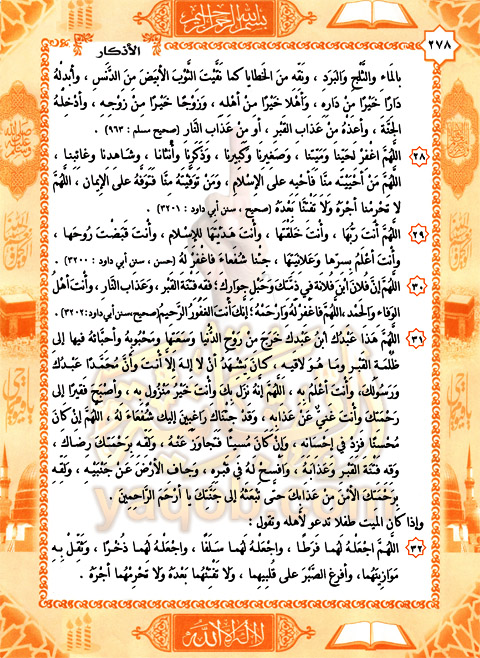 بسم الله الرحمن الرحيم
٢٧٨
الأذكار
بالماءِ والثَّلْجِ والبَرَدِ ، ونَقِّهِ منَ الخطايا كما نَقَّيْتَ الثَّوْبَ الأبيَضَ مِنَ الدَّنَسِ ، وأبدِلْهُ
دَارًا خَيْرًا مِنْ دَارِهِ ، وَأَهْلًا خَيْرًا مِنْ أهْلِهِ ، وَزَوْجًا خَيْرًا مِنْ زَوْجِهِ ، وأدْخِلْهُ
الجَنَّةَ ، وأعِذْهُ مِنْ عَذَابِ القَبْرِ ، أو مِنْ عَذَابِ النَّارِ (صحيح مسلم : ٩٦٣) .
٢٨ اللَّهُمَّ اغْفِرْ لِحَيِّنَا وَمَيِّتِنَا ، وَصَغِيرِنَا وكَبِيرِنَا ، وَذَكَرِنَا وأُنْثَانَا ، وشَاهِدِنَا وغَائِبِنَا ،
اللَّهُمَّ مَنْ أَحْيَيْتَهُ مِنَّا فَأَحْيِهِ على الإسْلَامِ ، وَمَنْ تَوَفَّيْتَهُ مِنَّا فَتَوَفَّهُ على الإيمَانِ ، اللَّهُمَّ
لا تَحْرِمْنَا أجْرَهُ وَلَا تَفْتِنَّا بَعْدَهُ (صحيح ، سنن أبي داود : ٣٢٠١) .
٢٩ اللَّهُمَّ أنْتَ رَبُّهَا ، وأنْتَ خَلَقْتَهَا ، وأنْتَ هَدَيْتَهَا لِلإِسْلَامِ ، وأنْتَ قَبَضْتَ رُوحَهَا ،
وأنْتَ أعْلَمُ بِسِرِّهَا وَعَلَانِيَتِهَا ، جِئْنَا شُفَعَاءَ فَاغْفِرْ لَهُ (حسن ، سنن أبي داود : ٣٢٠٠) .
٣٠ اللَّهُمَّ إنَّ فُلَانَ ابْنَ فُلَانَةٍ في ذِمَّتِكَ وَحَبْلِ جِوَارِكَ ؛ فَقِهِ فِتْنَةَ القَبْرِ ، وعَذَابَ النَّارِ ، وأنْتَ أهْلُ
الوَفَاءِ وَالحَمْدِ ، اللَّهُمَّ فَاغْفِرْ لَهُ وَارْحَمْهُ ؛ إنَّكَ أنْتَ الغَفُورُ الرَّحِيمُ (صحيح سنن أبي داود : ٣٢٠٢) .
٣١ اللَّهُمَّ هَذَا عَبْدُكَ ابْنُ عَبْدِكَ خَرَجَ مِنْ رَوْحِ الدُّنْيَا وَسَعَتِهَا وَمَحْبُوبِهِ وأحِبَّائِهِ فيهَا إلى
ظُلْمَةِ القَبْرِ وَمَا هُوَ لَاقِيهِ ، كَانَ يَشْهَدُ أنْ لَا إلهَ إلَّا أنْتَ وأنَّ مُحَمَّدًا عَبْدُكَ
وَرَسُولُكَ، وأنْتَ أعْلَمُ بِهِ ، اللَّهُمَّ إنَّهُ نَزَلَ بِكَ وأنْتَ خَيْرُ مَنْزُولٍ بِهِ ، وأصْبَحَ فَقِيرًا إلى
رَحْمَتِكَ وأنْتَ غَنِيٌّ عَنْ عَذَابِهِ ، وَقَدْ جِئْنَاكَ رَاغِبِينَ إلَيْكَ شُفَعَاءَ لَهُ ، اللَّهُمَّ إنْ كَانَ
مُحْسِنًا فَزِدْ في إحْسَانِهِ ، وإنْ كَانَ مُسِيئًا فَتَجَاوَزْ عَنْهُ ، وَلَقِّهِ بِرَحْمَتِكَ رِضَاكَ ،
وَقِهِ فِتْنَةَ القَبْرِ وَعَذَابَهُ ، وافْسَحْ لَهُ في قَبْرِهِ ، وجَافِ الأرْضَ عَنْ جَنْبَيْهِ ، وَلَقِّهِ
بِرَحْمَتِكَ الأمْنَ مِنْ عَذَابِكَ حَتَّى تَبْعَثَهُ إلى جَنَّتِكَ يا أرْحَمَ الرَّاحِمِينَ .
وإذا كان الميت طفلا تدعو لأهله وتقول :
٣٢ اللَّهُمَّ اجْعَلْهُ لَهُمَا فَرَطًا ، واجْعَلْهُ لَهُمَا سَلَفًا ، واجْعَلْهُ لَهُمَا ذُخْرًا ، وثَقِّلْ بِهِ
مَوَازِينَهُمَا، وأفْرِغِ الصَّبْرَ على قُلُوبِهِمَا ، وَلَا تَفْتِنْهُمَا بَعْدَهُ وَلَا تَحْرِمْهُمَا أجْرَهُ .
yaqob.com
لا إله إلا الله